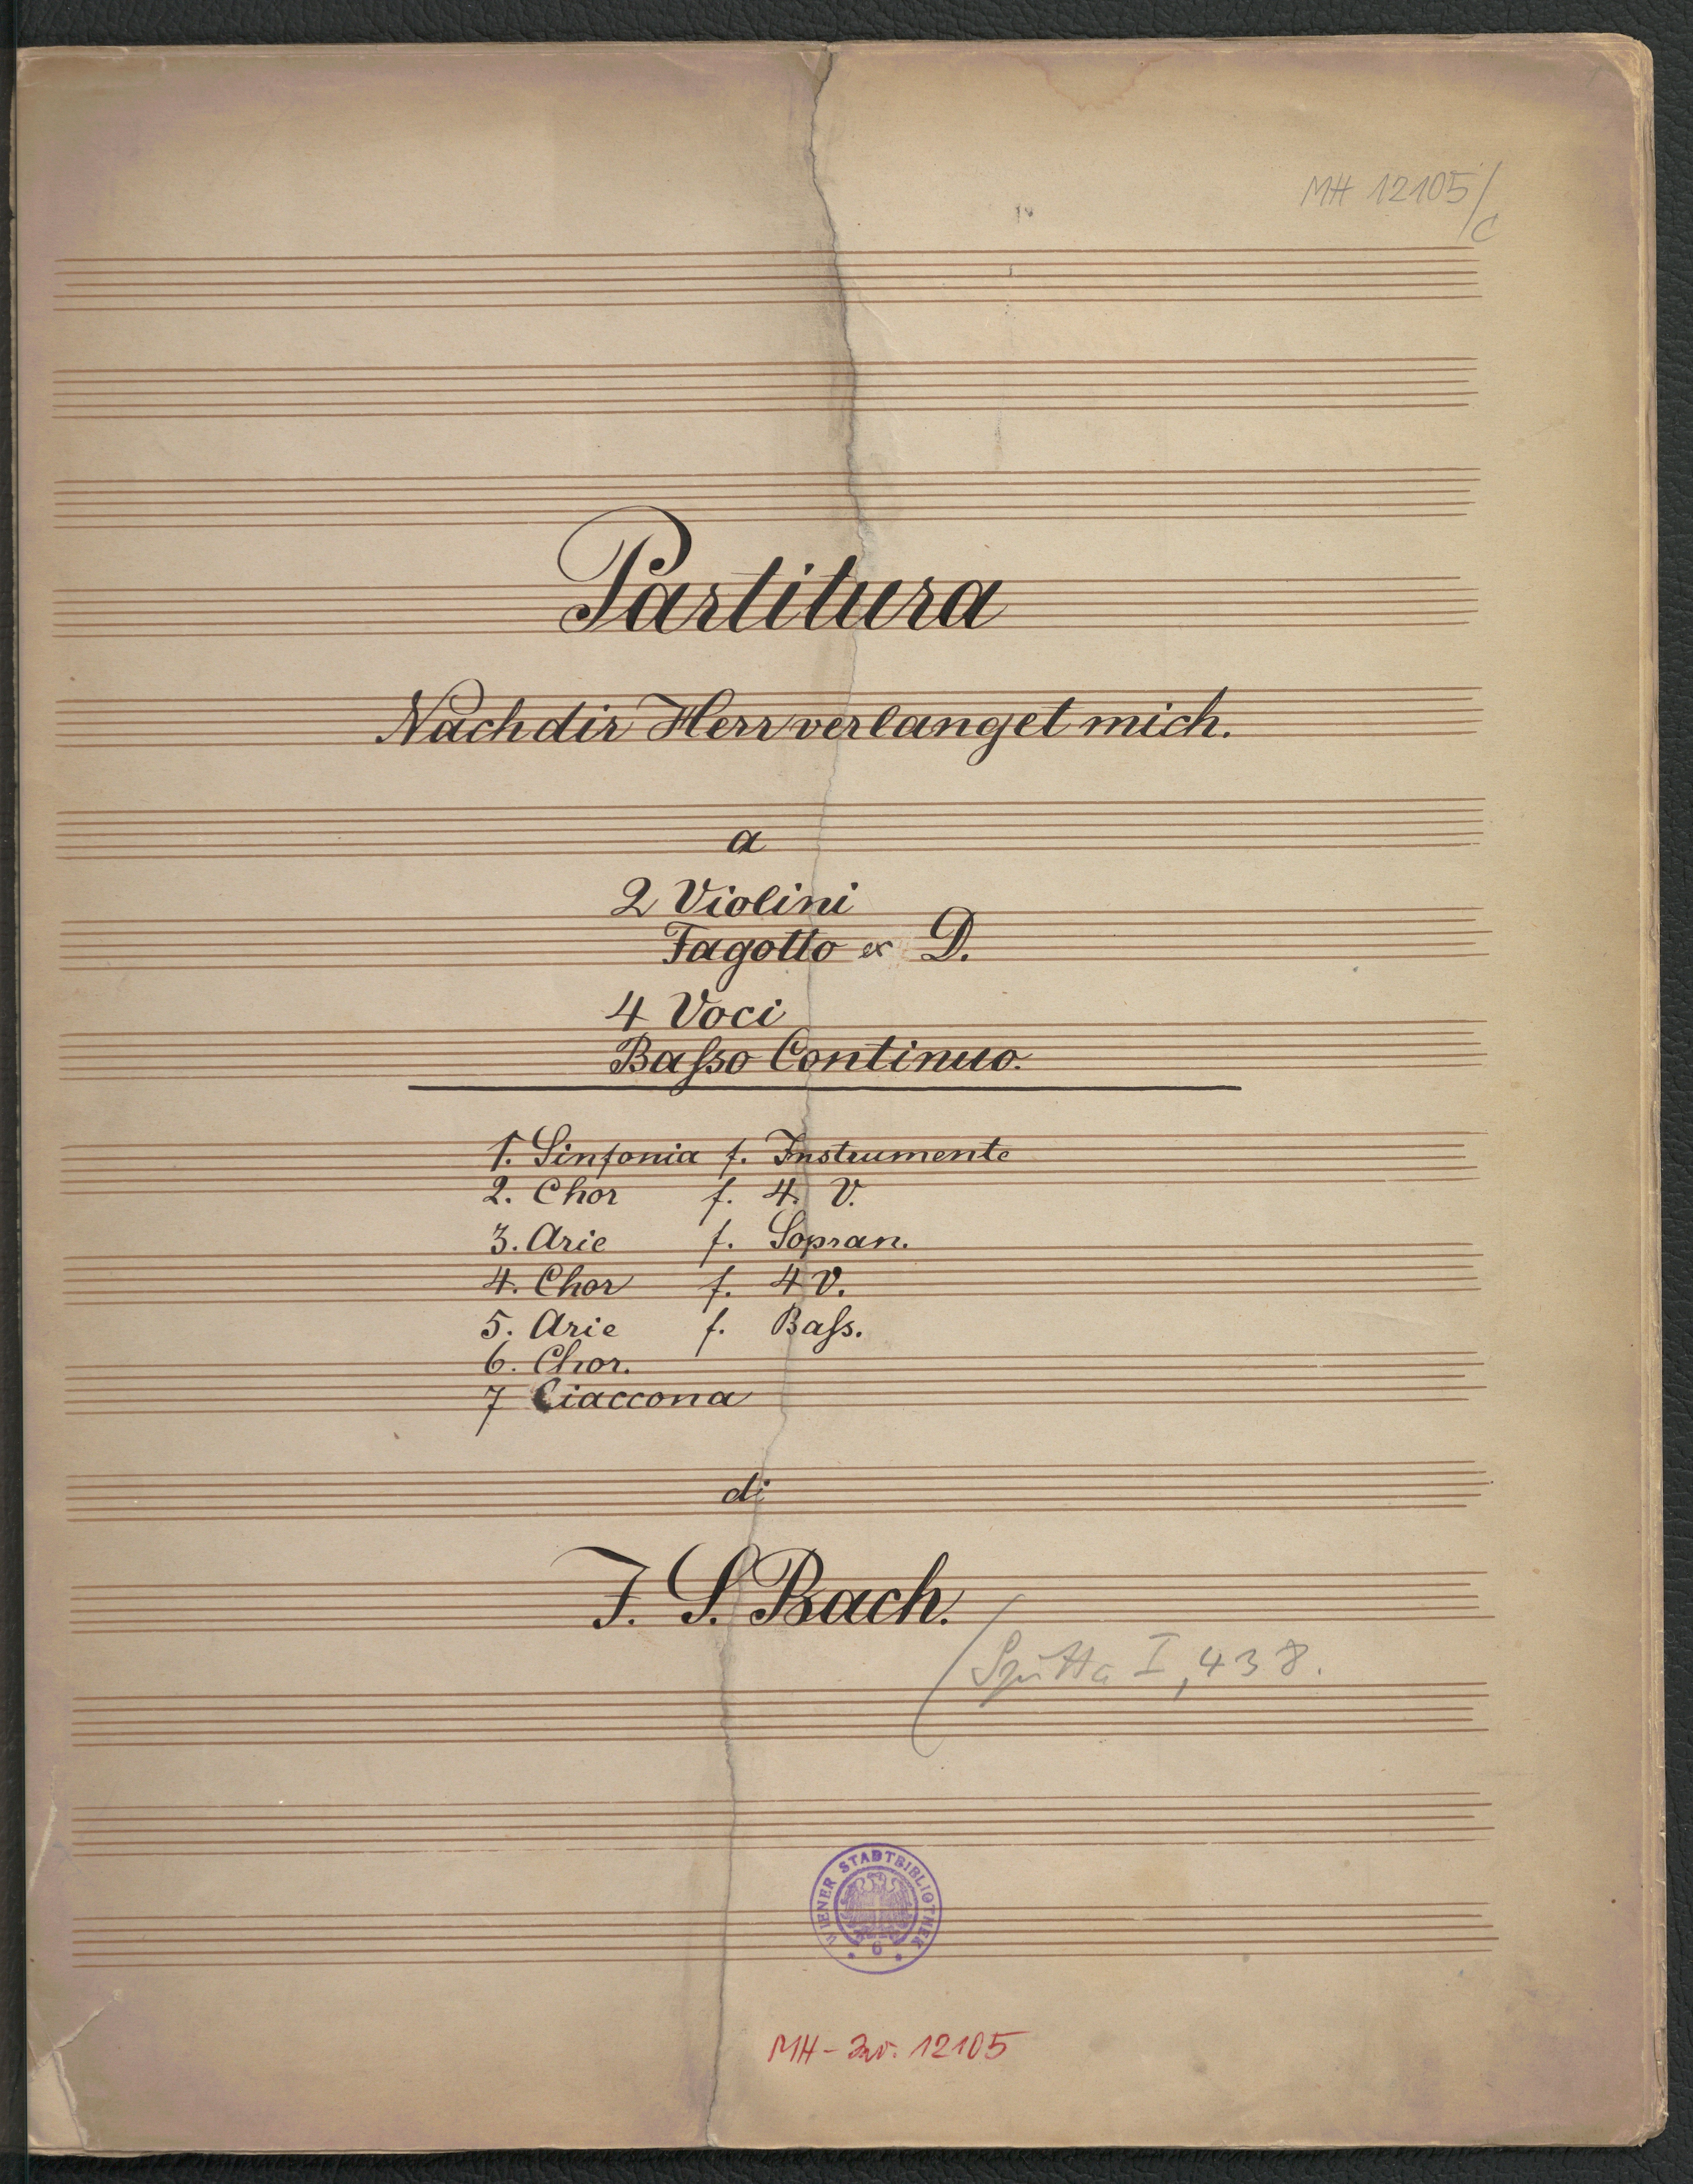 MH 12105/c
Partitura
Nach dir Herr verlanget mich.
a
2 Violini
Fagotto ex D.
4 Voci
Basso Continuo.
1. Sinfonia f. Instrumente
2. Chor f. 4. V.
3. Arie f. Sopran.
4. Chor f. 4 V.
5. Arie f. Bass.
6. Chor.
7 Ciaccona
di
J. S. Bach.
(Spitta I, 438.
WIENER STADTBIBLIOTHEK
6
MH - Inv. 12105